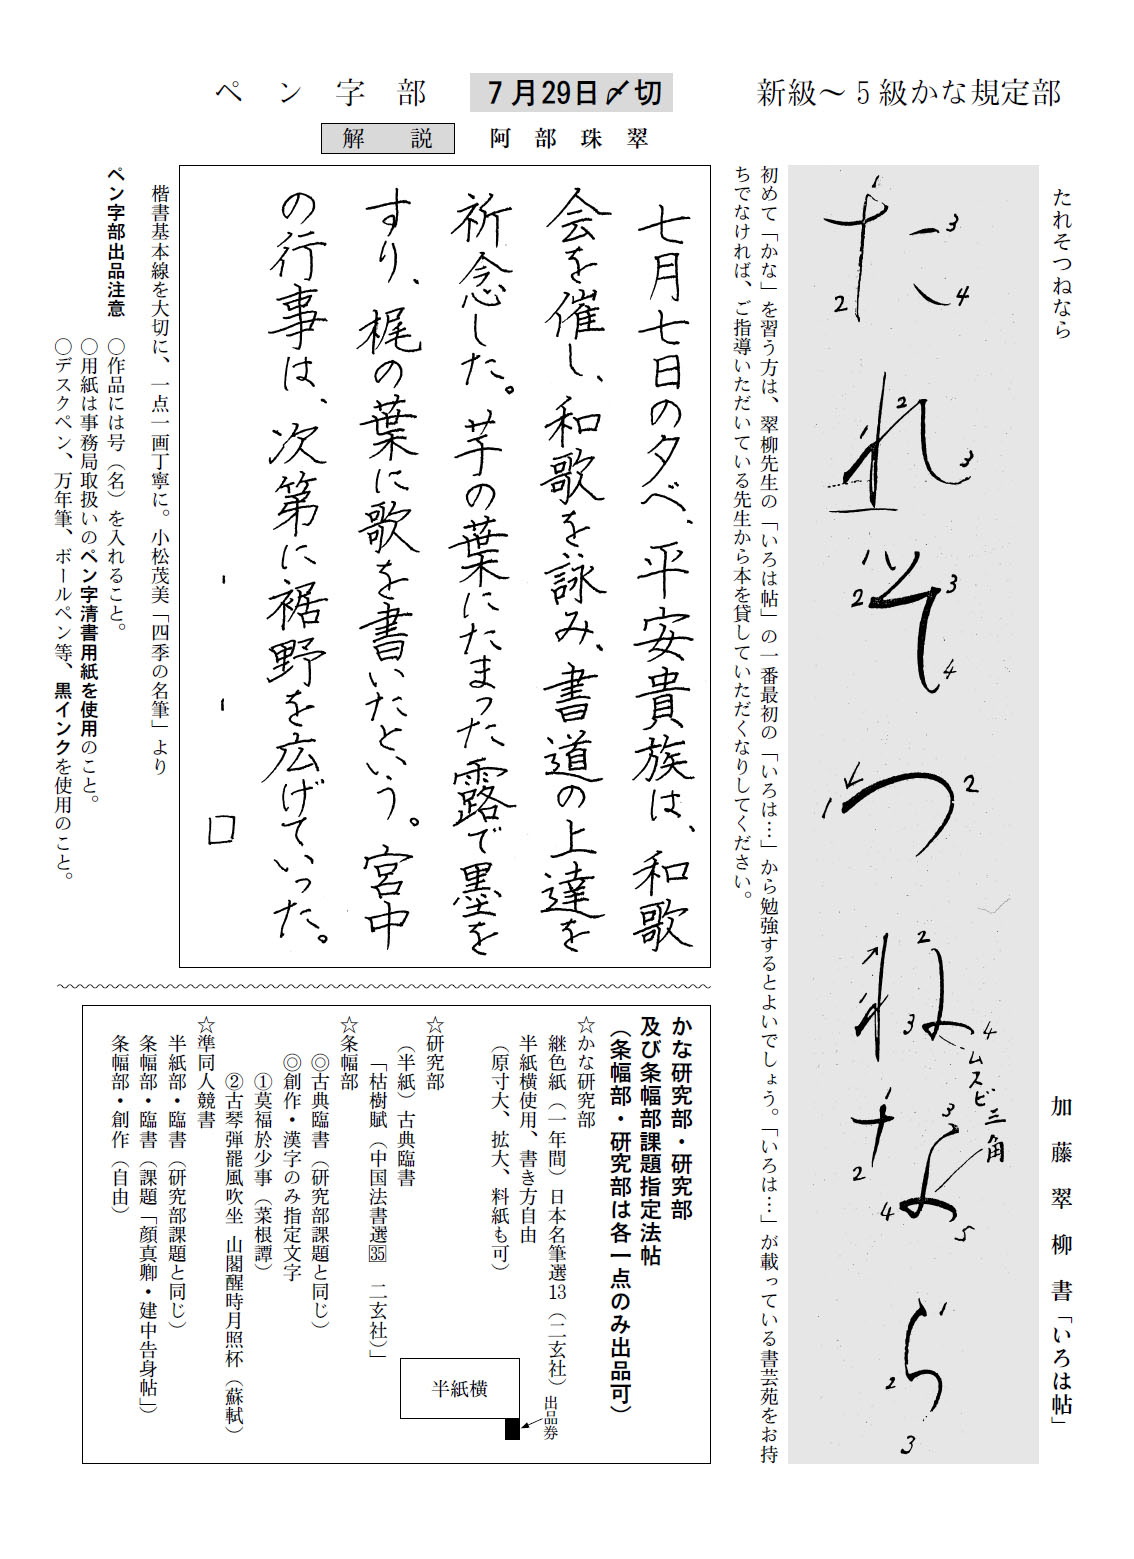 新級〜5級かな規定部
たれそつねなら
加藤翠柳書「いろは帖」
たれそつねなら
1
2
3
4
2
3
1
2
3
4
1
2
1
2
3
4
ムスビ三角
1
2
3
4
5
1
2
3
初めて「かな」を習う方は、翠柳先生の「いろは帖」の一番最初の「いろは…」から勉強するとよいでしょう。「いろは…」が載っている書芸苑をお持
ちでなければ、ご指導いただいている先生から本を貸していただくなりしてください。
7月29日〆切
ペン字部
解説
阿部珠翠
七月七日の夕べ、平安貴族は、和歌
会を催し、和歌を詠み、書道の上達を
祈念した。芋の葉にたまった露で墨を
すり、梶の葉に歌を書いたという。宮中
の行事は、次第に裾野を広げていった。
楷書基本線を大切に、一点一画丁寧に。小松茂美「四季の名筆」より
ペン字部出品注意 ○作品には号（名）を入れること。
○用紙は事務局取扱いのペン字清書用紙を使用のこと。
○デスクペン、万年筆、ボールペン等、黒インクを使用のこと。
かな研究部・研究部
及び条幅部課題指定法帖
（条幅部・研究部は各一点のみ出品可）
☆かな研究部
継色紙（一年間）日本名筆選13（二玄社）
半紙横使用、書き方自由
（原寸大、拡大、料紙も可）
半紙横
出品券
☆研究部
（半紙）古典臨書
「枯樹賦（中国法書選35 二玄社）」
☆条幅部
◎古典臨書（研究部課題と同じ）
◎創作・漢字のみ指定文字
①莫福於少事（菜根譚）
②古琴弾罷風吹坐 山閣醒時月照杯（蘇軾）
☆準同人競書
半紙部・臨書（研究部課題と同じ）
条幅部・臨書（課題「顔真卿・建中告身帖」）
条幅部・創作（自由）